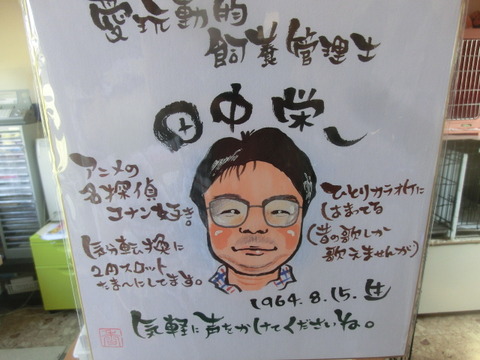 愛玩動的
飼養管理士
田中栄一
アニメの
名探偵
コナン好き。
気分転換に
2円スロット
たまーにしてます。
ひとりカラオケに
はまってる
(昔の歌しか
歌えませんが)
1964.8.15.生
気軽に声をかけてくださいね。